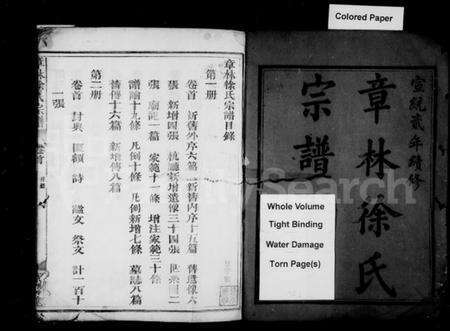 Colored Paper
宣統貳年續修
章林徐氏
宗譜
Whole Volume
Tight Binding
Water Damage
Torn Page(s)
章林徐氏宗譜目錄
第一册
卷首 新舊外序六篇 新舊內序十五篇 舊遺像六
張 新增四張 祧廳新遺像三十四張
張 廟記一篇 家範十一條 增注家範三十條
譜論十九條 凡例十條 凡例新增七條 墓誌八篇
舊傳十六篇 新傳八篇
第二册
卷首 封典 匾額 詩 文 祭文 計一百十
一張